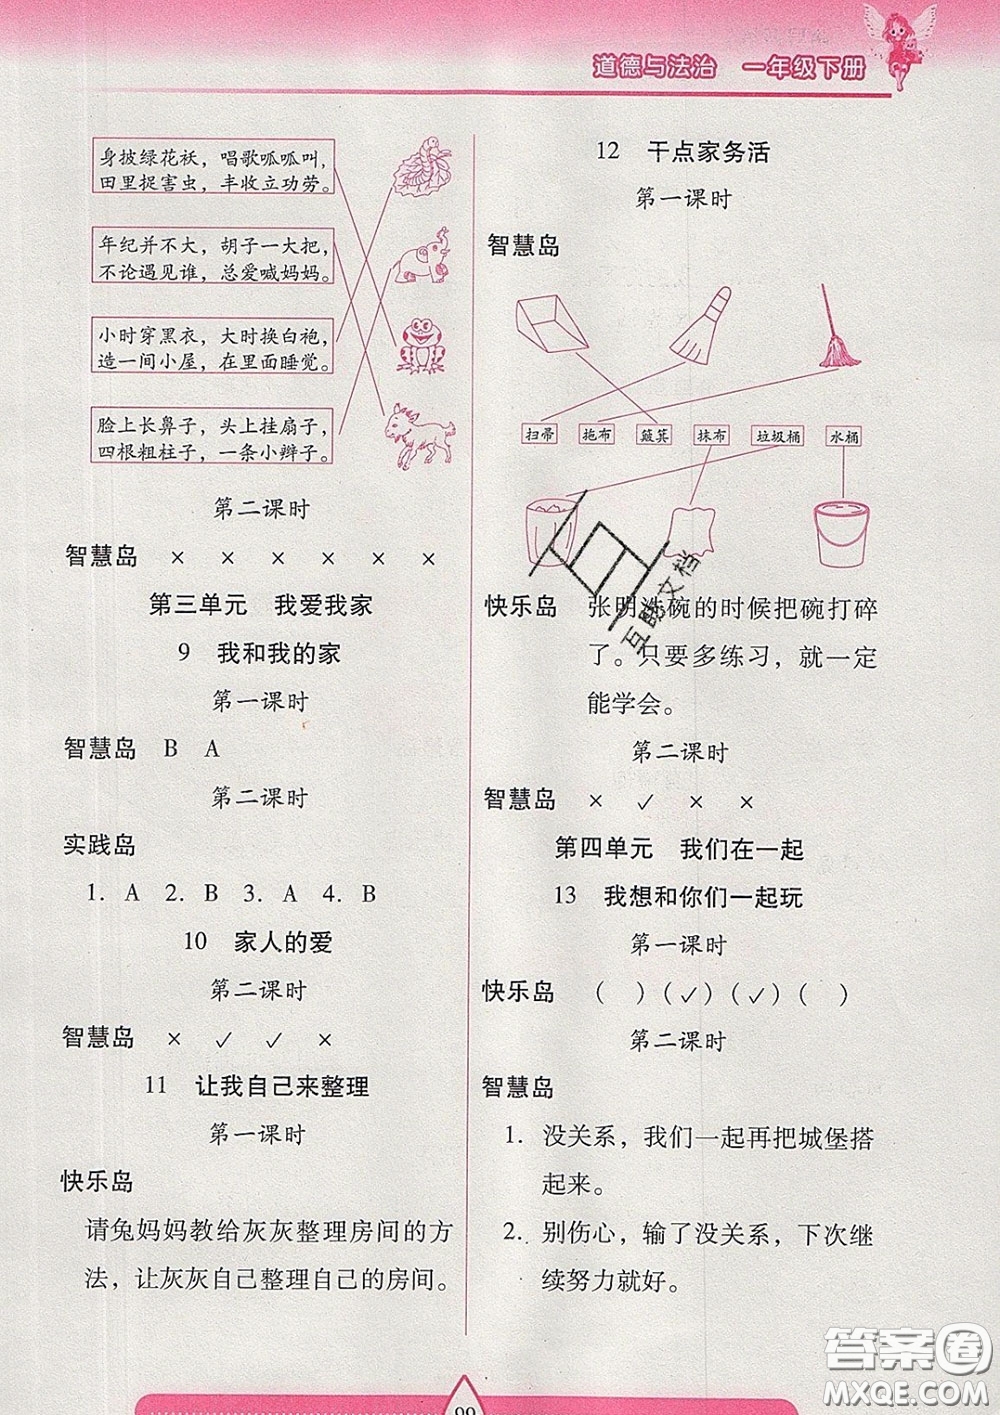 道德与法治 一年级下册
身披绿花袄，唱歌呱呱叫，
田里捉害虫，丰收立功劳。
年纪并不大，胡子一大把，
不论遇见谁，总爱喊妈妈。
小时穿黑衣，大时换白袍，
造一间小屋，在里面睡觉。
脸上长鼻子，头上挂扇子，
四根粗柱子，一条小辫子。
第二课时
智慧岛 × × × × × ×
第三单元 我爱我家
9 我和我的家
第一课时
智慧岛 B A
第二课时
实践岛
1. A 2. B 3. A 4. B
10 家人的爱
第二课时
智慧岛 × ✓ ✓ ×
11 让我自己来整理
第一课时
快乐岛
请兔妈妈教给灰灰整理房间的方
法，让灰灰自己整理自己的房间。
12 干点家务活
第一课时
智慧岛
扫帚 拖布 簸箕 抹布 垃圾桶 水桶
快乐岛 张明洗碗的时候把碗打碎
了。只要多练习，就一定
能学会。
第二课时
智慧岛 × ✓ × ×
第四单元 我们在一起
13 我想和你们一起玩
第一课时
快乐岛 （ ）（✓）（✓）（ ）
第二课时
智慧岛
1. 没关系，我们一起再把城堡搭
起来。
2. 别伤心，输了没关系，下次继
续努力就好。
互联文档
99
答案圈
MXQE.COM